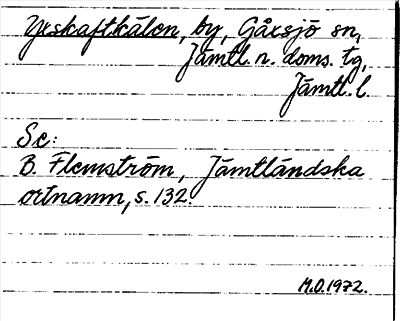 Yxskaftkälen, by, Gåxsjö sn,
Jämtl. n. doms. tg,
Jämtl. l.
Se:
B. Flemström, Jämtländska
ortnamn, s. 132.
M.O.1972.